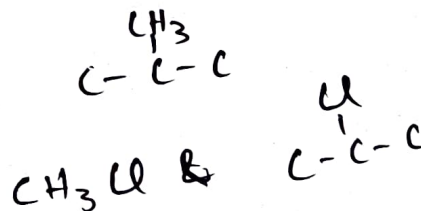 CH3
C - C - C
Cl
CH3 Cl & C - C - C